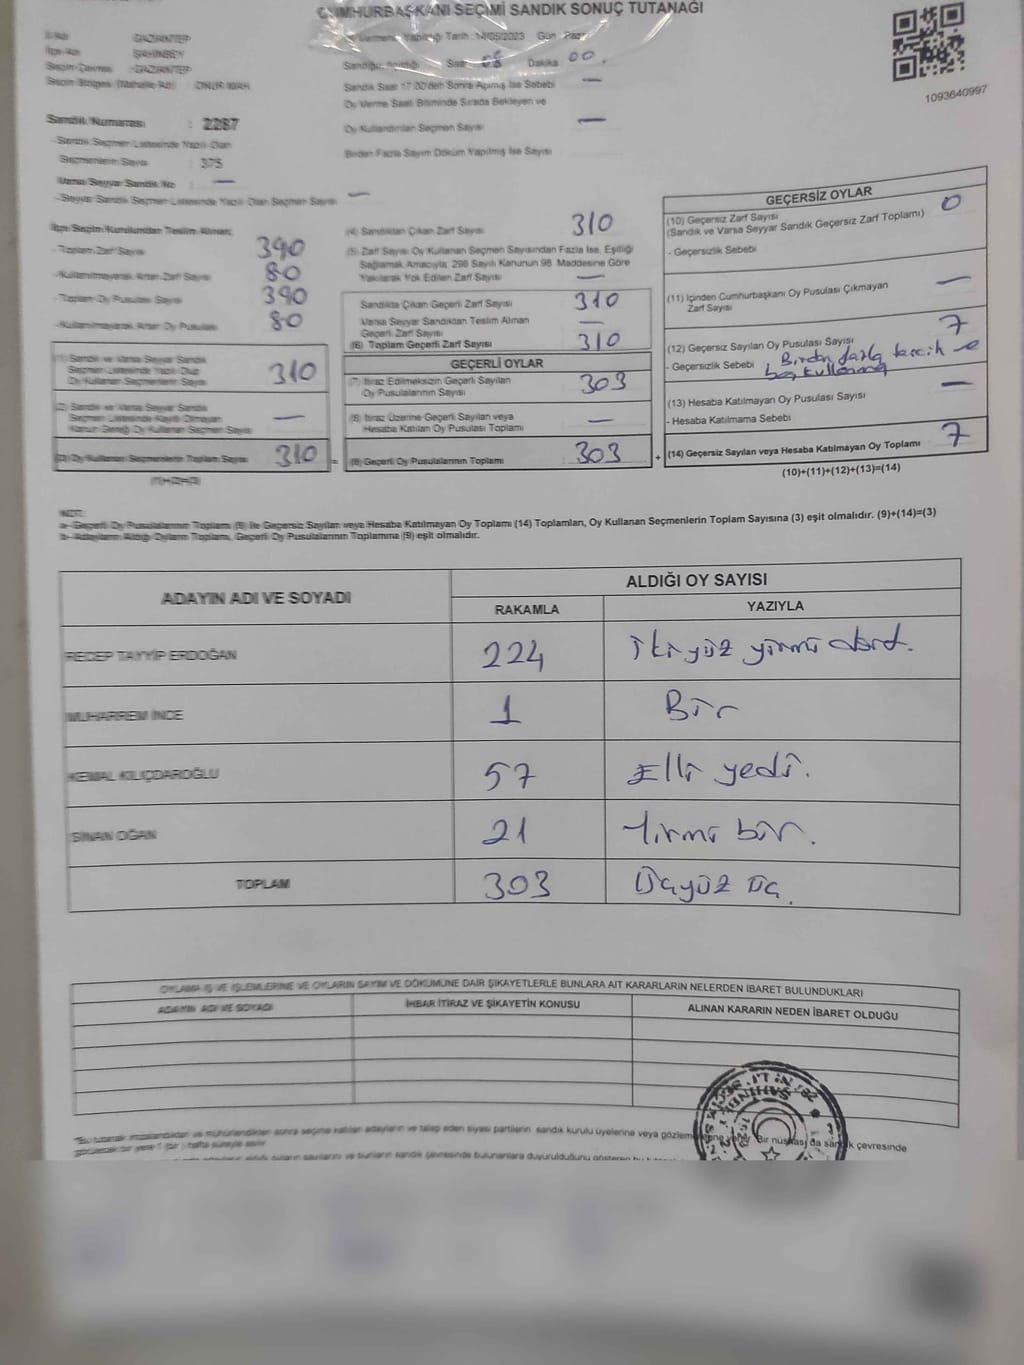 CUMHURBAŞKANI SEÇİMİ SANDIK SONUÇ TUTANAĞI
İl Adı : GAZİANTEP
İlçe Adı : ŞAHİNBEY
Seçim Çevresi : GAZİANTEP
Seçim Bölgesi (Mahalle Adı) : ONUR MAH
Sandık Numarası : 2287
- Sandık Seçmen Listesinde Yazılı Olan
Seçmenlerin Sayısı : 375
Varsa Seyyar Sandık No : —
- Seyyar Sandık Seçmen Listesinde Yazılı Olan Seçmen Sayısı —
Tarih : 14/05/2023 Gün : Pazar
Saat : 08 Dakika 00.
Sandık Saat 17:00'den Sonra Açılmış İse Sebebi —
Oy Verme Saati Bitiminde Sırada Bekleyen ve
Oy Kullandırılan Seçmen Sayısı —
Birden Fazla Sayım Döküm Yapılmış İse Sayısı
1093640997
İlçe Seçim Kurulundan Teslim Alınan;
- Toplam Zarf Sayısı 390
- Kullanılmayarak Artan Zarf Sayısı 80
- Toplam Oy Pusulası Sayısı 390
- Kullanılmayarak Artan Oy Pusulası 80
(1) Sandık ve Varsa Seyyar Sandık
Seçmen Listesinde Yazılı Olup
Oy Kullanan Seçmenlerin Sayısı 310
(2) Sandık ve Varsa Seyyar Sandık
Seçmen Listesinde Kayıtlı Olmayan
Kanun Gereği Oy Kullanan Seçmen Sayısı —
(3) Oy Kullanan Seçmenlerin Toplam Sayısı 310 =
(1)+(2)=(3)
(4) Sandıktan Çıkan Zarf Sayısı 310
(5) Zarf Sayısı Oy Kullanan Seçmen Sayısından Fazla İse, Eşitliği
Sağlamak Amacıyla, 298 Sayılı Kanunun 98. Maddesine Göre
Yakılarak Yok Edilen Zarf Sayısı —
Sandıkta Çıkan Geçerli Zarf Sayısı 310
Varsa Seyyar Sandıktan Teslim Alınan
Geçerli Zarf Sayısı —
(6) Toplam Geçerli Zarf Sayısı 310
GEÇERLİ OYLAR
(7) İtiraz Edilmeksizin Geçerli Sayılan
Oy Pusulasının Sayısı 303
(8) İtiraz Üzerine Geçerli Sayılan veya
Hesaba Katılan Oy Pusulası Toplamı —
(9) Geçerli Oy Pusulalarının Toplamı : 303 +
GEÇERSİZ OYLAR
(10) Geçersiz Zarf Sayısı 0
(Sandık ve Varsa Seyyar Sandık Geçersiz Zarf Toplamı)
- Geçersizlik Sebebi
(11) İçinden Cumhurbaşkanı Oy Pusulası Çıkmayan
Zarf Sayısı —
(12) Geçersiz Sayılan Oy Pusulası Sayısı 7
- Geçersizlik Sebebi : Birden fazla tercih ve
boş kullanma
(13) Hesaba Katılmayan Oy Pusulası Sayısı —
- Hesaba Katılmama Sebebi
(14) Geçersiz Sayılan veya Hesaba Katılmayan Oy Toplamı 7
(10)+(11)+(12)+(13)=(14)
NOT:
a- Geçerli Oy Pusulalarının Toplamı (9) ile Geçersiz Sayılan veya Hesaba Katılmayan Oy Toplamı (14) Toplamları, Oy Kullanan Seçmenlerin Toplam Sayısına (3) eşit olmalıdır. (9)+(14)=(3)
b- Adayların Aldığı Oyların Toplamı, Geçerli Oy Pusulalarının Toplamına (9) eşit olmalıdır.
ADAYIN ADI VE SOYADI
ALDIĞI OY SAYISI
RAKAMLA YAZIYLA
RECEP TAYYİP ERDOĞAN 224 ikiyüz yirmi dört.
MUHARREM İNCE 1 Bir
KEMAL KILIÇDAROĞLU 57 Elli yedi.
SİNAN OĞAN 21 Yirmi bir.
TOPLAM 303 Üçyüz üç.
OYLAMA İŞ VE İŞLEMLERİNE VE OYLARIN SAYIM VE DÖKÜMÜNE DAİR ŞİKAYETLERLE BUNLARA AİT KARARLARIN NELERDEN İBARET BULUNDUKLARI
ADAYIN ADI VE SOYADI İHBAR İTİRAZ VE ŞİKAYETİN KONUSU ALINAN KARARIN NEDEN İBARET OLDUĞU
*Bu tutanak imzalandıktan ve mühürlendikten sonra seçime katılan adayların ve talep eden siyasi partilerin sandık kurulu üyelerine veya Bir nüshası da sandık çevresinde
görülecek bir yere 1 (bir) hafta süreyle asılır.
ŞAHİNBEY